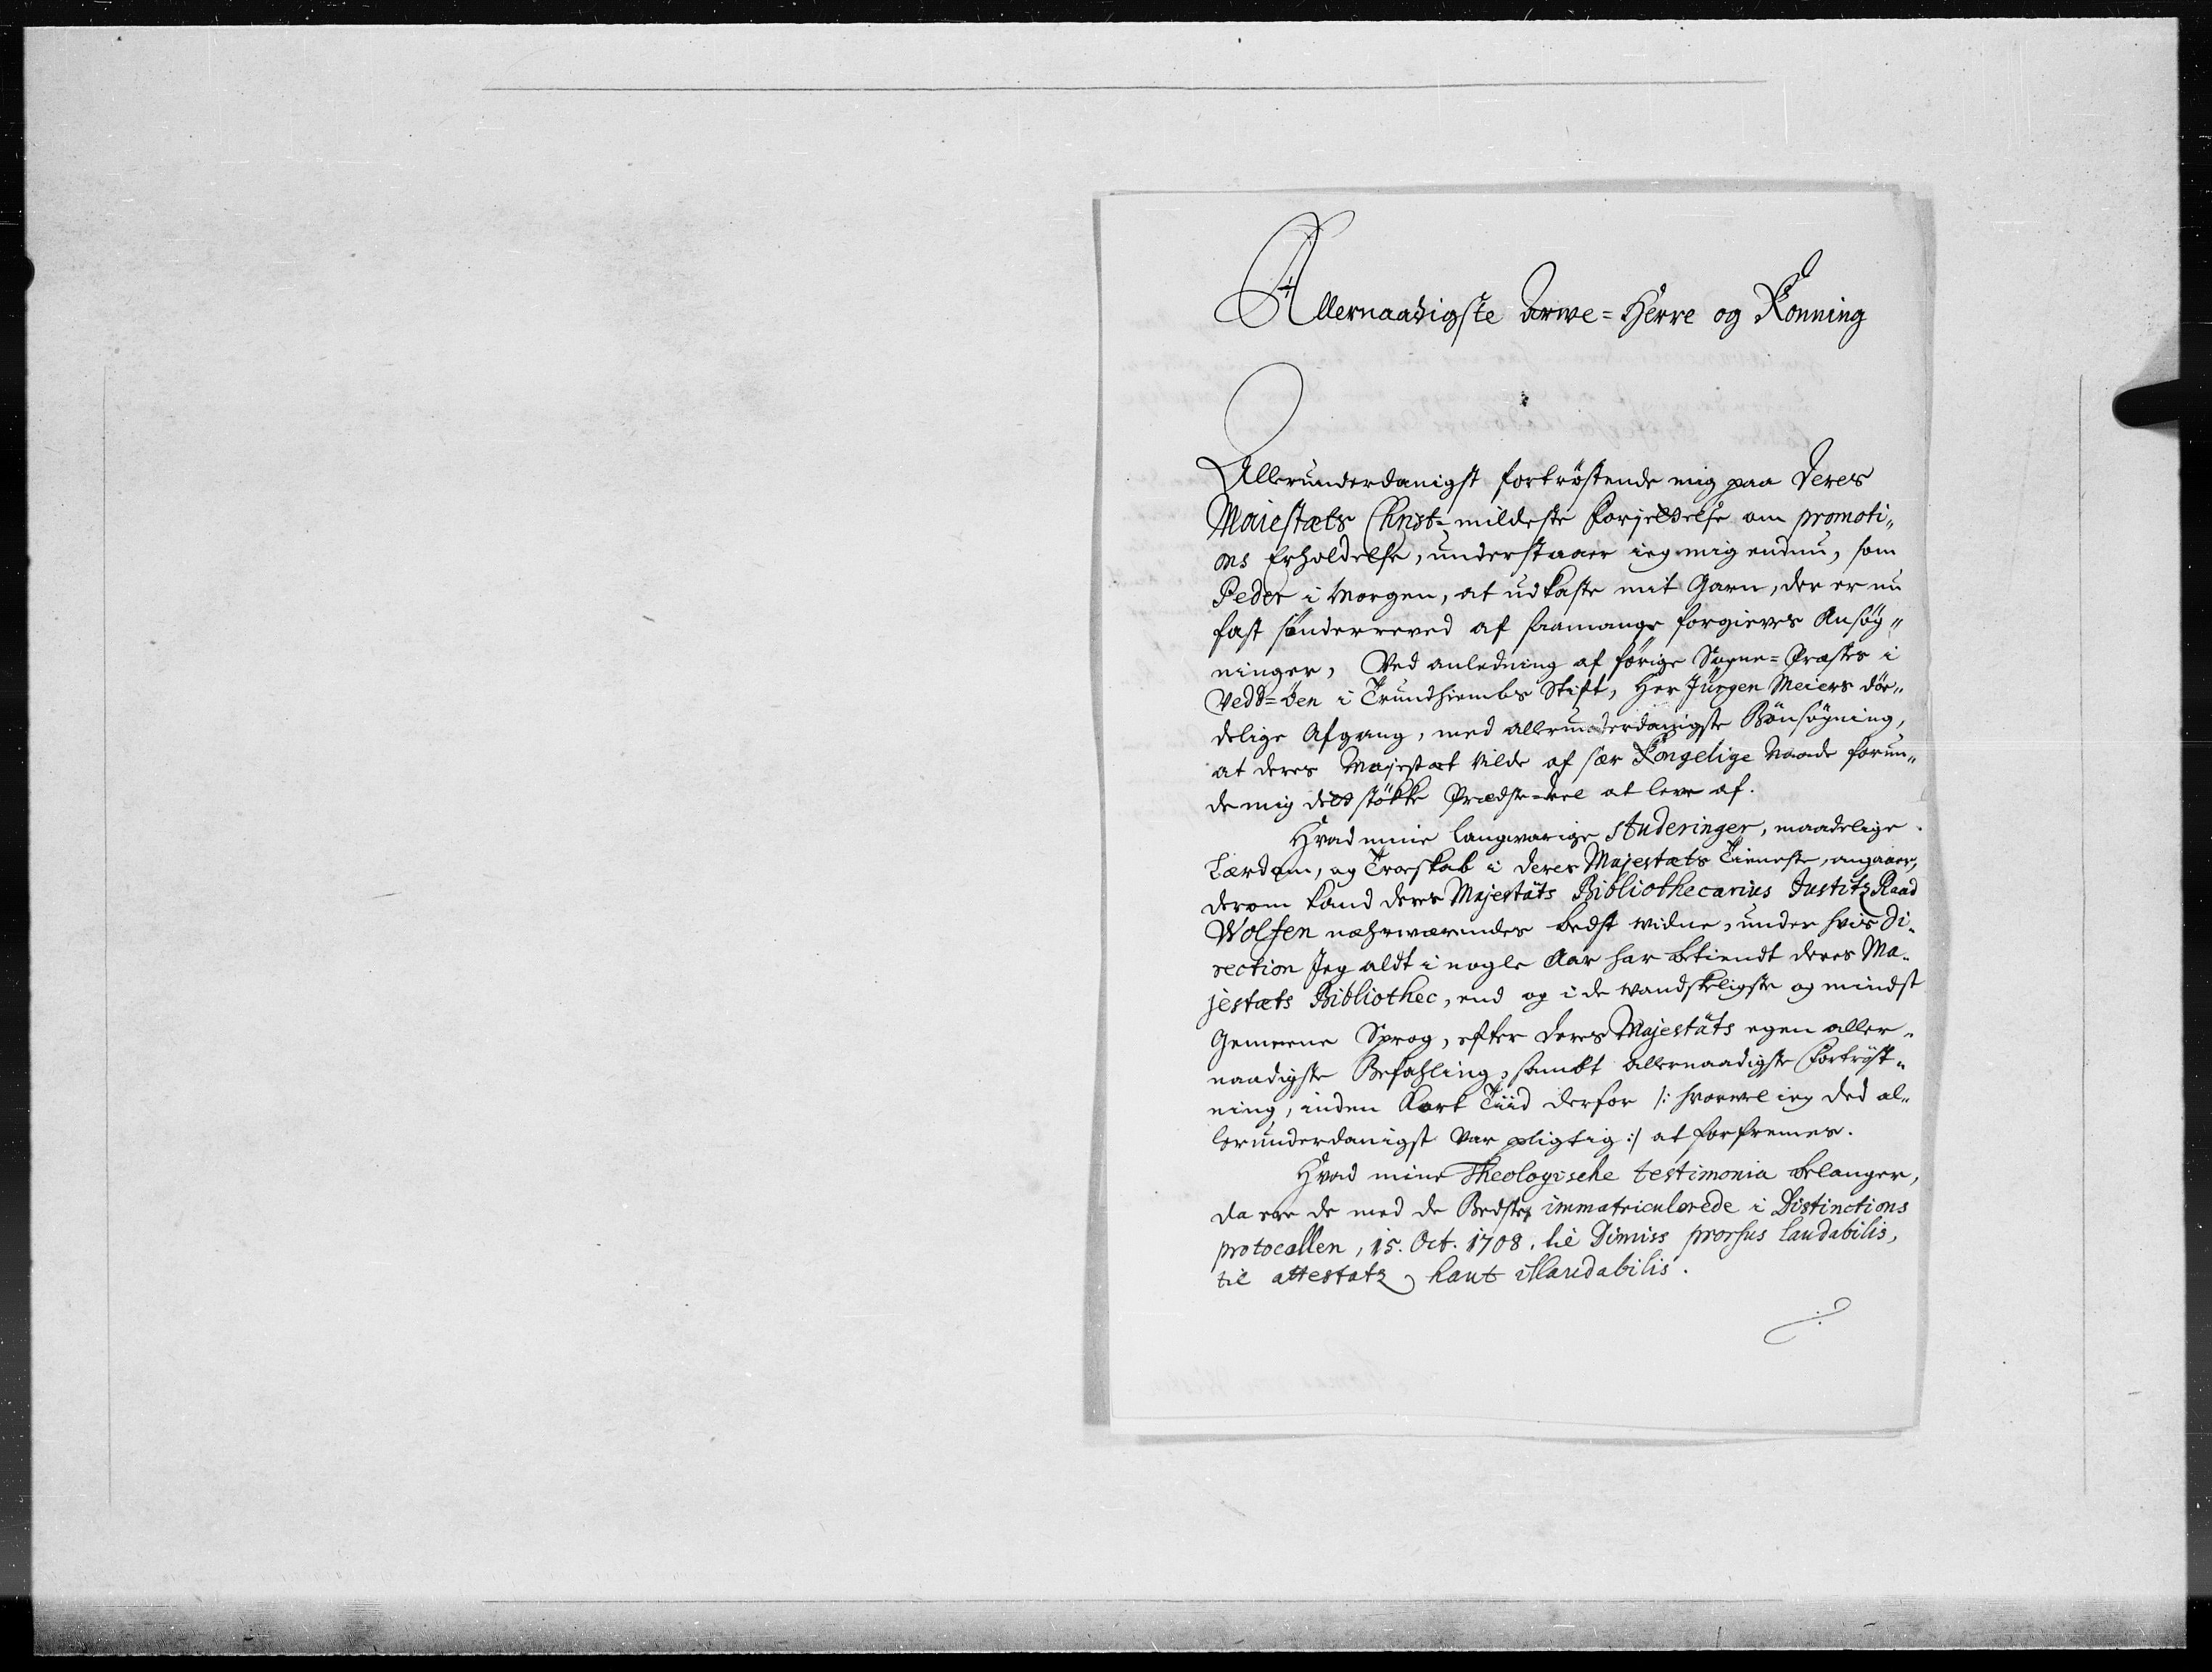 Allernaadigste Arwe=Herre og Konning
Allerunderdanigst fortröstende mig paa Deres
Maiestæts Christ=mildeste Forjettelse om promoti„
ons Erholdelse, understaaer ieg mig endnu, som
Peder i Morgen, at udkaste mit Garn, der er nu
fast sönderreved af saamange forgieves Ansøg„
ninger, Ved anledning af forige Sogne=Præstes i
Vedd=öen i Trundhiembs Stift, Her Jürgen Meiers död„
delige Afgang, med allerunderdanigste Bönsøgning,
at deres Majestæt vilde af sær Kongelige Naade forun„
de mig det støkke Prædste=kal at leve af.
Hvad mine langvarige studeringer, maadelige
Lærdom, og Troeskab i deres Majestæts Tieneste, angaaer,
derom kand deres Majestäts Bibliothecarius Justitz Raad
Wolfen nærwærendes bedst widne, under hvis Di„
rection Jeg aldt i nogle Aar har betiendt deres Ma„
jestæts Bibliothec, end og i de wandskeligste og mindst
Gemeene Sprog, efter deres Majestäts egen aller„
naadigste Befahling, sambt allernaadigste Fortrøst„
ning, inden Kort Tiid derfor /: hvorvel ieg ded al„
lerunderdanigst var pligtig :/ at forfremes.
Hvad mine Theologische testimonia belanger,
da ere de med de Bedstes immatriculerede i Distinctions
protocollen, 15. Oct. 1708. til Dimiss prorsus laudabilis,
til attestatz haut illaudabilis.